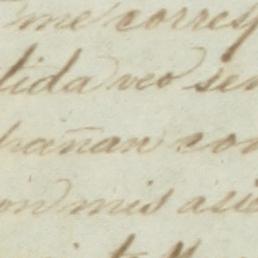 me corresp
lida veo sen
pañan con
on mis asie